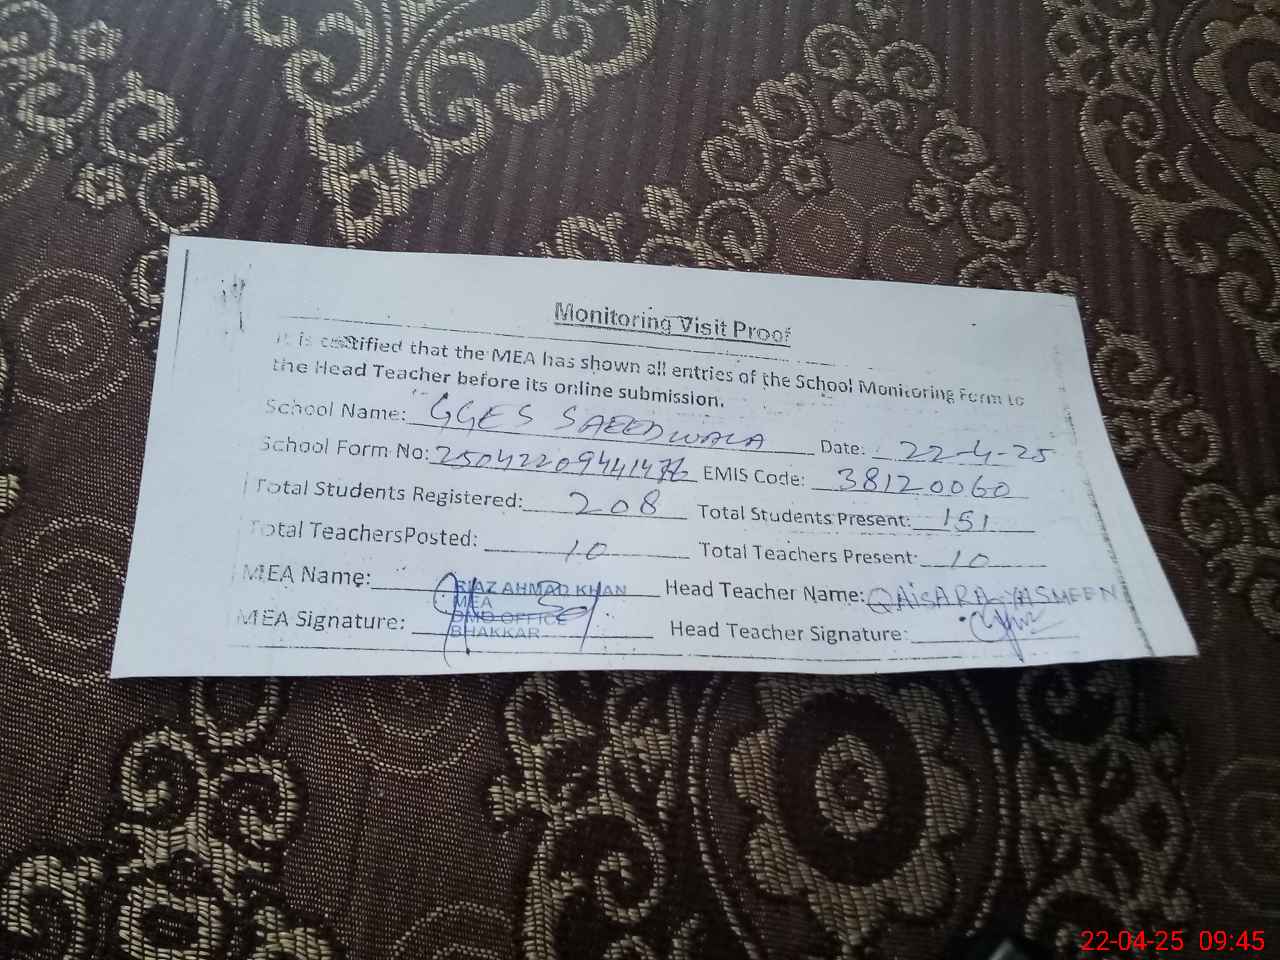 Monitoring Visit Proof
It is certified that the MEA has shown all entries of the School Monitoring Form to
the Head Teacher before its online submission.
School Name: GGES SAEEDWALA Date: 22-4-25
School Form No: EMIS Code: 38120060
Total Students Registered: 208 Total Students Present: 151
Total TeachersPosted: 10 Total Teachers Present: 10
MEA Name: RIAZ AHMAD KHAN Head Teacher Name: QAISARA YASMEEN
MEA
DMO OFFICE
BHAKKAR
MEA Signature: Head Teacher Signature:
22-04-25 09:45